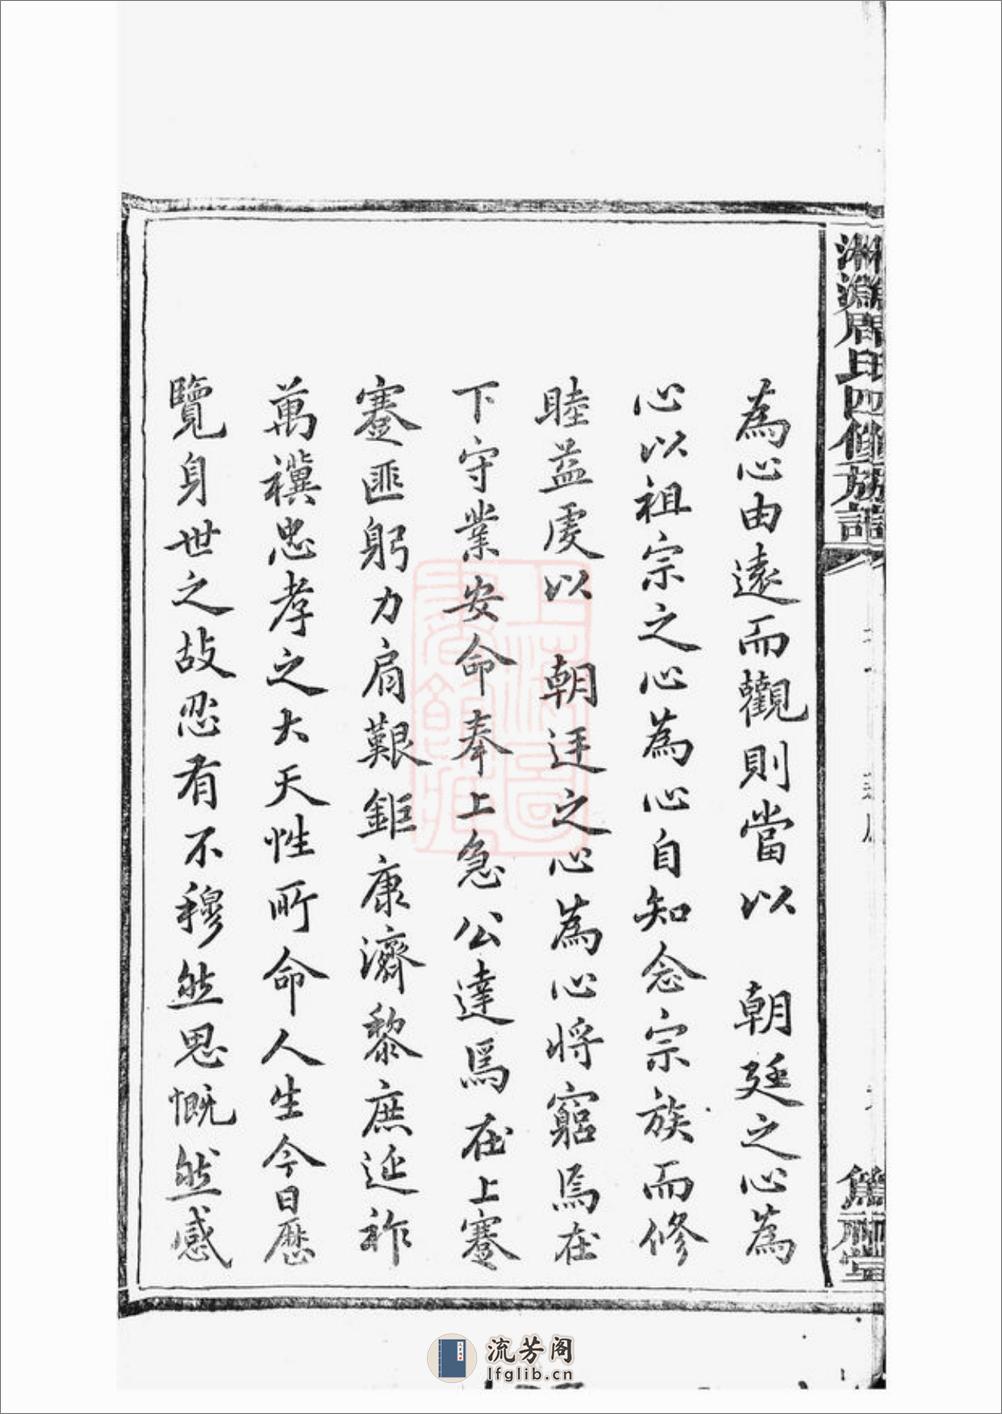 為心由遠而觀則當以　朝廷之心為
心以祖宗之心為心自知念宗族而修
睦益虔以　朝廷之心為心將窮焉在
下守業安命奉上急公達焉在上蹇
蹇匪躬力肩艱鉅康濟黎庶延祚
萬禩忠孝之大天性所命人生今日歷
覽身世之故忍有不穆然思慨然感
周氏四修族譜
流芳阁
lfglib.cn